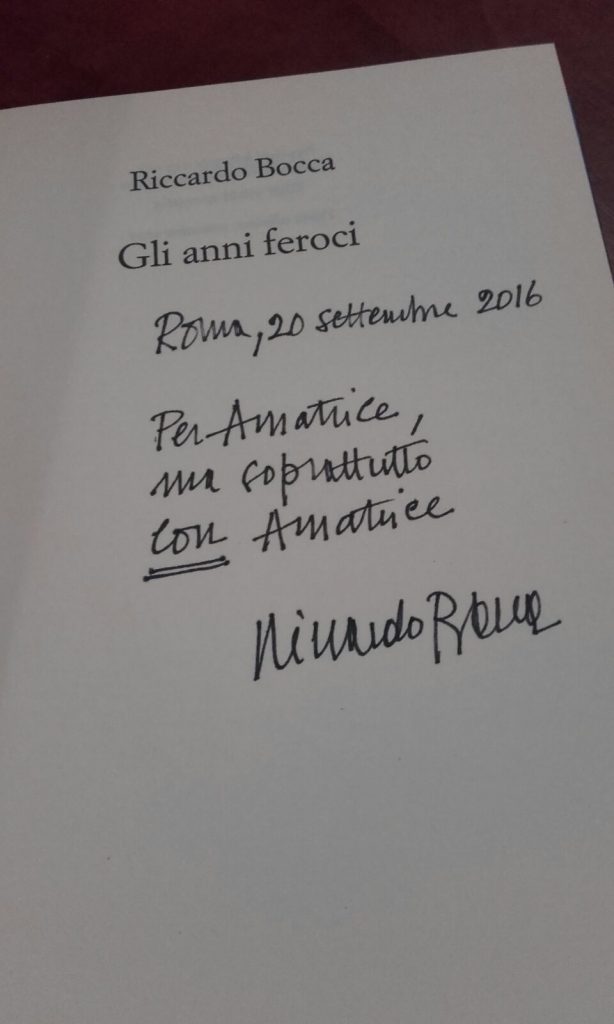 Riccardo Bocca
Gli anni feroci
Roma, 20 settembre 2016
Per Amatrice,
ma soprattutto
con Amatrice
Riccardo Bocca